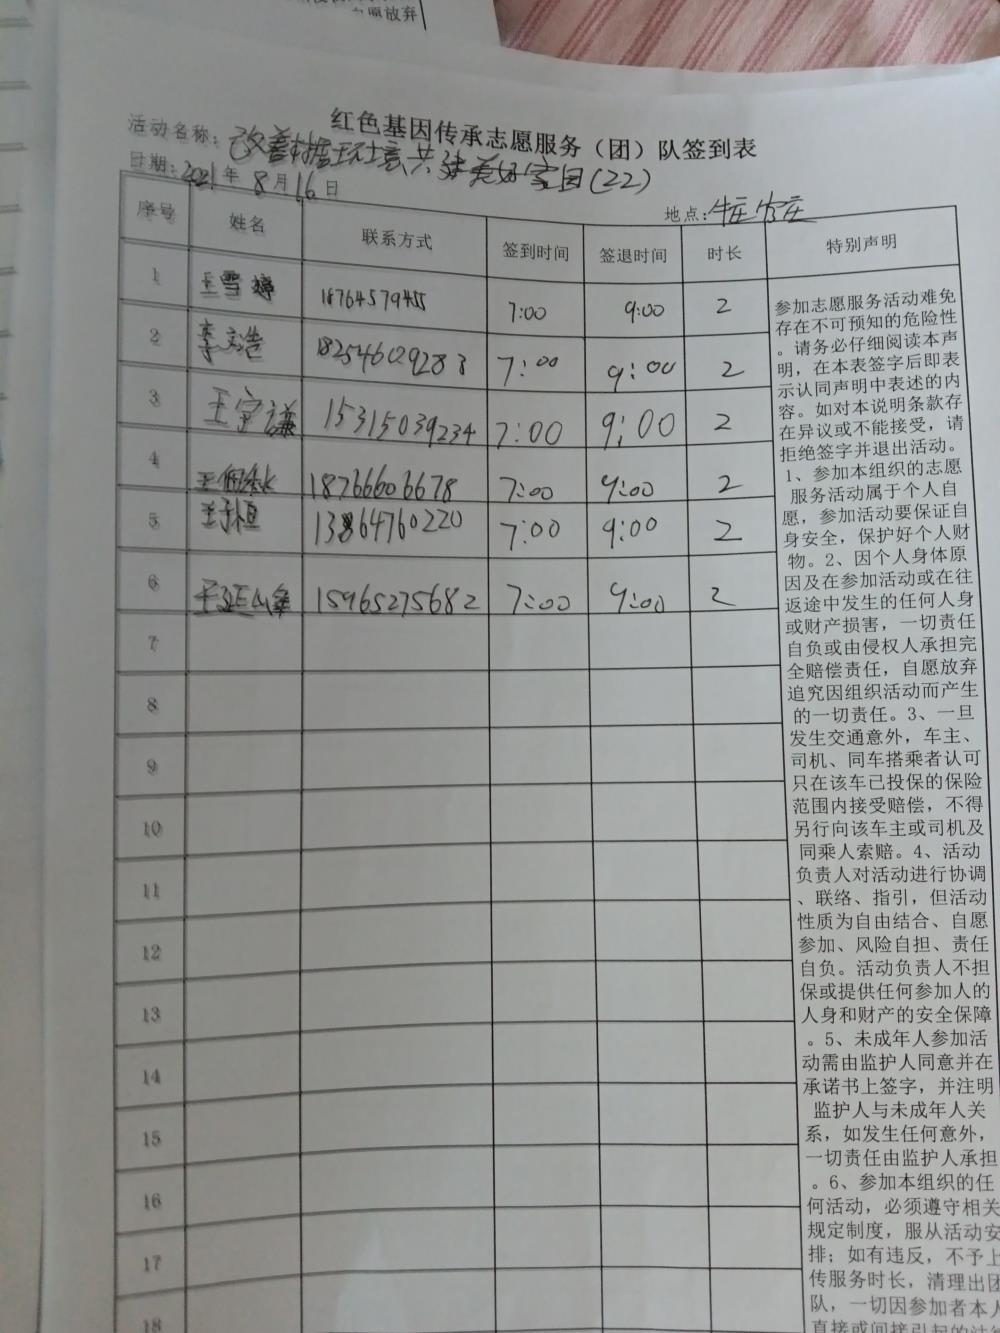 自愿放弃
红色基因传承志愿服务（团）队签到表
活动名称：改善村居环境 共建美好家园(22)
日期：2021年8月16日
地点：牛庄
序号 姓名 联系方式 签到时间 签退时间 时长 特别声明
1 王雪婷 18764579455 7:00 9:00 2
2 李文浩 18254602928 3 7:00 9:00 2
3 王宇谦 15315039234 7:00 9:00 2
4 王 18766606678 7:00 9:00 2
5 王子恒 13864760220 7:00 9:00 2
6 王 15965275682 7:00 9:00 2
7
8
9
10
11
12
13
14
15
16
17
18
参加志愿服务活动难免
存在不可预知的危险性
。请务必仔细阅读本声
明，在本表签字后即表
示认同声明中表述的内
容。如对本说明条款存
在异议或不能接受，请
拒绝签字并退出活动。
1、参加本组织的志愿
服务活动属于个人自
愿，参加活动要保证自
身安全，保护好个人财
物。2、因个人身体原
因及在参加活动或在往
返途中发生的任何人身
或财产损害，一切责任
自负或由侵权人承担完
全赔偿责任，自愿放弃
追究因组织活动而产生
的一切责任。3、一旦
发生交通意外，车主、
司机、同车搭乘者认可
只在该车已投保的保险
范围内接受赔偿，不得
另行向该车主或司机及
同乘人索赔。4、活动
负责人对活动进行协调
、联络、指引，但活动
性质为自由结合、自愿
参加、风险自担、责任
自负。活动负责人不担
保或提供任何参加人的
人身和财产的安全保障
。5、未成年人参加活
动需由监护人同意并在
承诺书上签字，并注明
监护人与未成年人关
系，如发生任何意外，
一切责任由监护人承担
。6、参加本组织的任
何活动，必须遵守相关
规定制度，服从活动安
排；如有违反，不予上
传服务时长，清理出团
队，一切因参加者本人
直接或间接引起的法律